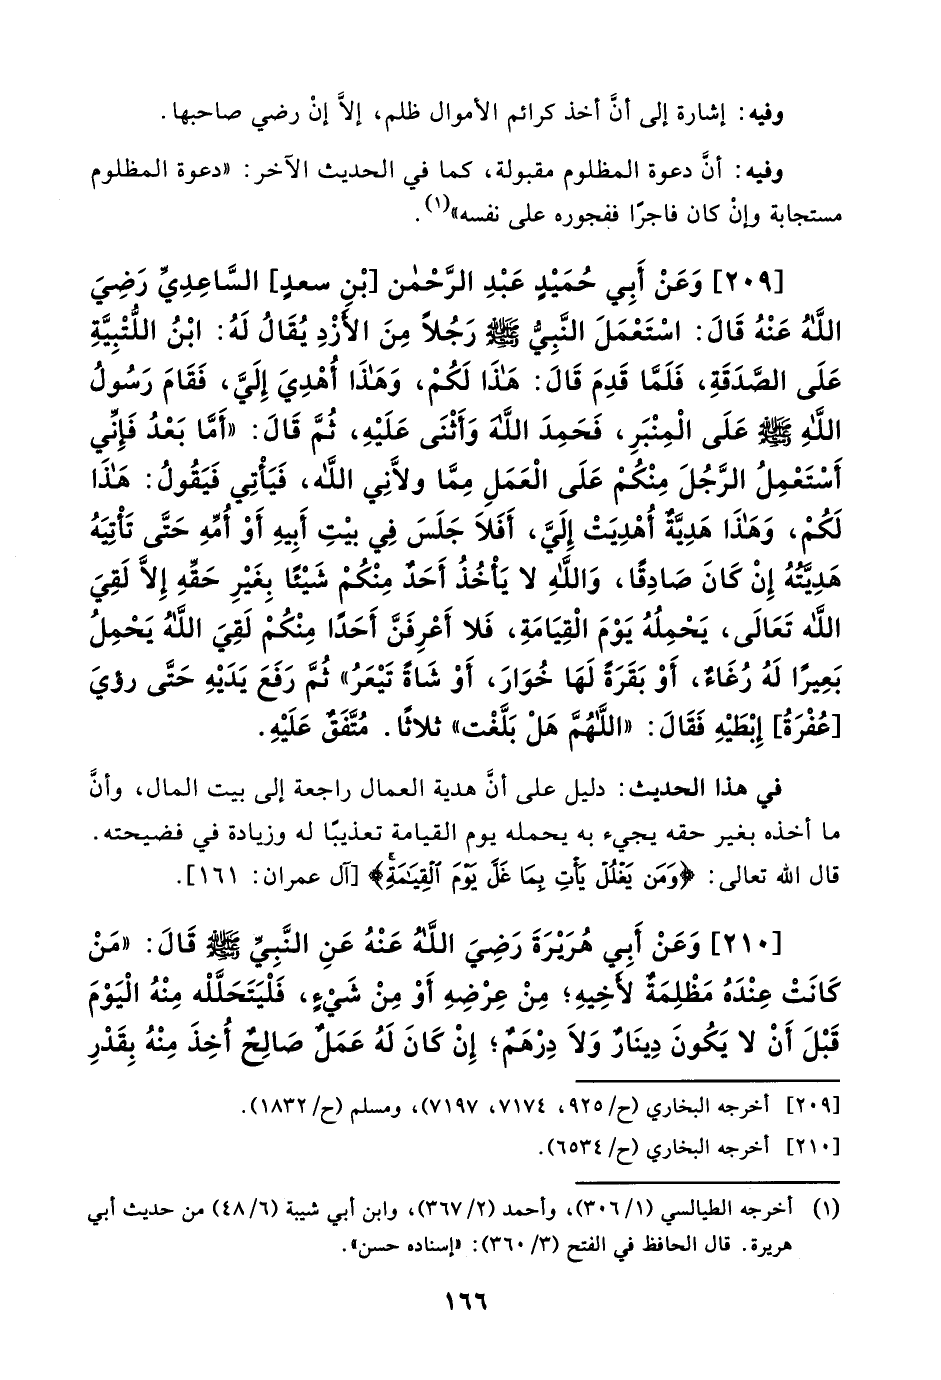 وفيه: إشارة إلى أنَّ أخذ كرائم الأموال ظلم، إلاَّ إنْ رضي صاحبها.
وفيه: أنَّ دعوة المظلوم مقبولة، كما في الحديث الآخر: «دعوة المظلوم
مستجابة وإنْ كان فاجرًا ففجوره على نفسه»(١).
[٢٠٩] وَعَنْ أَبِي حُمَيْدٍ عَبْدِ الرَّحْمٰن [بْنِ سعدٍ] السَّاعِدِيِّ رَضِيَ
اللَّهُ عَنْهُ قَالَ: اسْتَعْمَلَ النَّبِيُّ ﷺ رَجُلاً مِنَ الأَزْدِ يُقَالُ لَهُ: ابْنُ اللُّتْبِيَّةِ
عَلَى الصَّدَقَةِ، فَلَمَّا قَدِمَ قَالَ: هَذَا لَكُمْ، وَهَذَا أُهْدِيَ إِلَيَّ، فَقَامَ رَسُولُ
اللَّهِ ﷺ عَلَى الْمِنْبَرِ، فَحَمِدَ اللَّهَ وَأَثْنَى عَلَيْهِ، ثُمَّ قَالَ: «أَمَّا بَعْدُ فَإِنِّي
أَسْتَعْمِلُ الرَّجُلَ مِنْكُمْ عَلَى الْعَمَلِ مِمَّا ولاَّنِي اللَّه، فَيَأْتِي فَيَقُولُ: هَذَا
لَكُمْ، وَهَذَا هَدِيَّةٌ أُهْدِيَتْ إِلَيَّ، أَفَلاَ جَلَسَ فِي بيْتِ أَبِيهِ أَوْ أُمِّهِ حَتَّى تَأْتِيَهُ
هَدِيَّتُهُ إِنْ كَانَ صَادِقًا، وَاللَّهِ لا يَأْخُذُ أَحَدٌ مِنْكُمْ شَيْئًا بِغَيْرِ حَقِّهِ إِلاَّ لَقِيَ
اللَّه تَعَالَى، يَحْمِلُهُ يَوْمَ الْقِيَامَةِ، فَلا أَعْرِفَنَّ أَحَدًا مِنْكُمْ لَقِيَ اللَّهُ يَحْمِلُ
بَعِيرًا لَهُ رُغَاءٌ، أَوْ بَقَرَةً لَهَا خُوَارَ، أَوْ شَاةً تَيْعَرُ» ثُمَّ رَفَعَ يَدَيْهِ حَتَّى رؤيَ
[عُفْرَةُ] إِبْطَيْهِ فَقَالَ: «اللَّهُمَّ هَلْ بَلَّغْت» ثلاثًا. مُتَّفَقٌ عَلَيْهِ.
في هذا الحديث: دليل على أنَّ هدية العمال راجعة إلى بيت المال، وأنَّ
ما أخذه بغير حقه يجيء به يحمله يوم القيامة تعذيبًا له وزيادة في فضيحته.
قال الله تعالى: ﴿وَمَن يَغْلُلْ يَأْتِ بِمَا غَلَّ يَوْمَ ٱلْقِيَٰمَةِۚ﴾ [آل عمران: ١٦١].
[٢١٠] وَعَنْ أَبِي هُرَيْرَةَ رَضِيَ اللَّهُ عَنْهُ عَنِ النَّبِيِّ ﷺ قَالَ: «مَنْ
كَانَتْ عِنْدَهُ مَظْلِمَةٌ لأَخِيهِ؛ مِنْ عِرْضِهِ أَوْ مِنْ شَيْءٍ، فَلْيَتَحَلَّلْه مِنْهُ الْيَوْمَ
قَبْلَ أَنْ لا يَكُونَ دِينَارٌ وَلاَ دِرْهَمٌ؛ إِنْ كَانَ لَهُ عَمَلٌ صَالِحٌ أُخِذَ مِنْهُ بِقَدْرِ
[٢٠٩] أخرجه البخاري (ح/ ٩٢٥، ٧١٧٤، ٧١٩٧)، ومسلم (ح/ ١٨٣٢).
[٢١٠] أخرجه البخاري (ح/ ٦٥٣٤).
(١) أخرجه الطيالسي (١/ ٣٠٦)، وأحمد (٢/ ٣٦٧)، وابن أبي شيبة (٦/ ٤٨) من حديث أبي
هريرة. قال الحافظ في الفتح (٣/ ٣٦٠): «إسناده حسن».
١٦٦